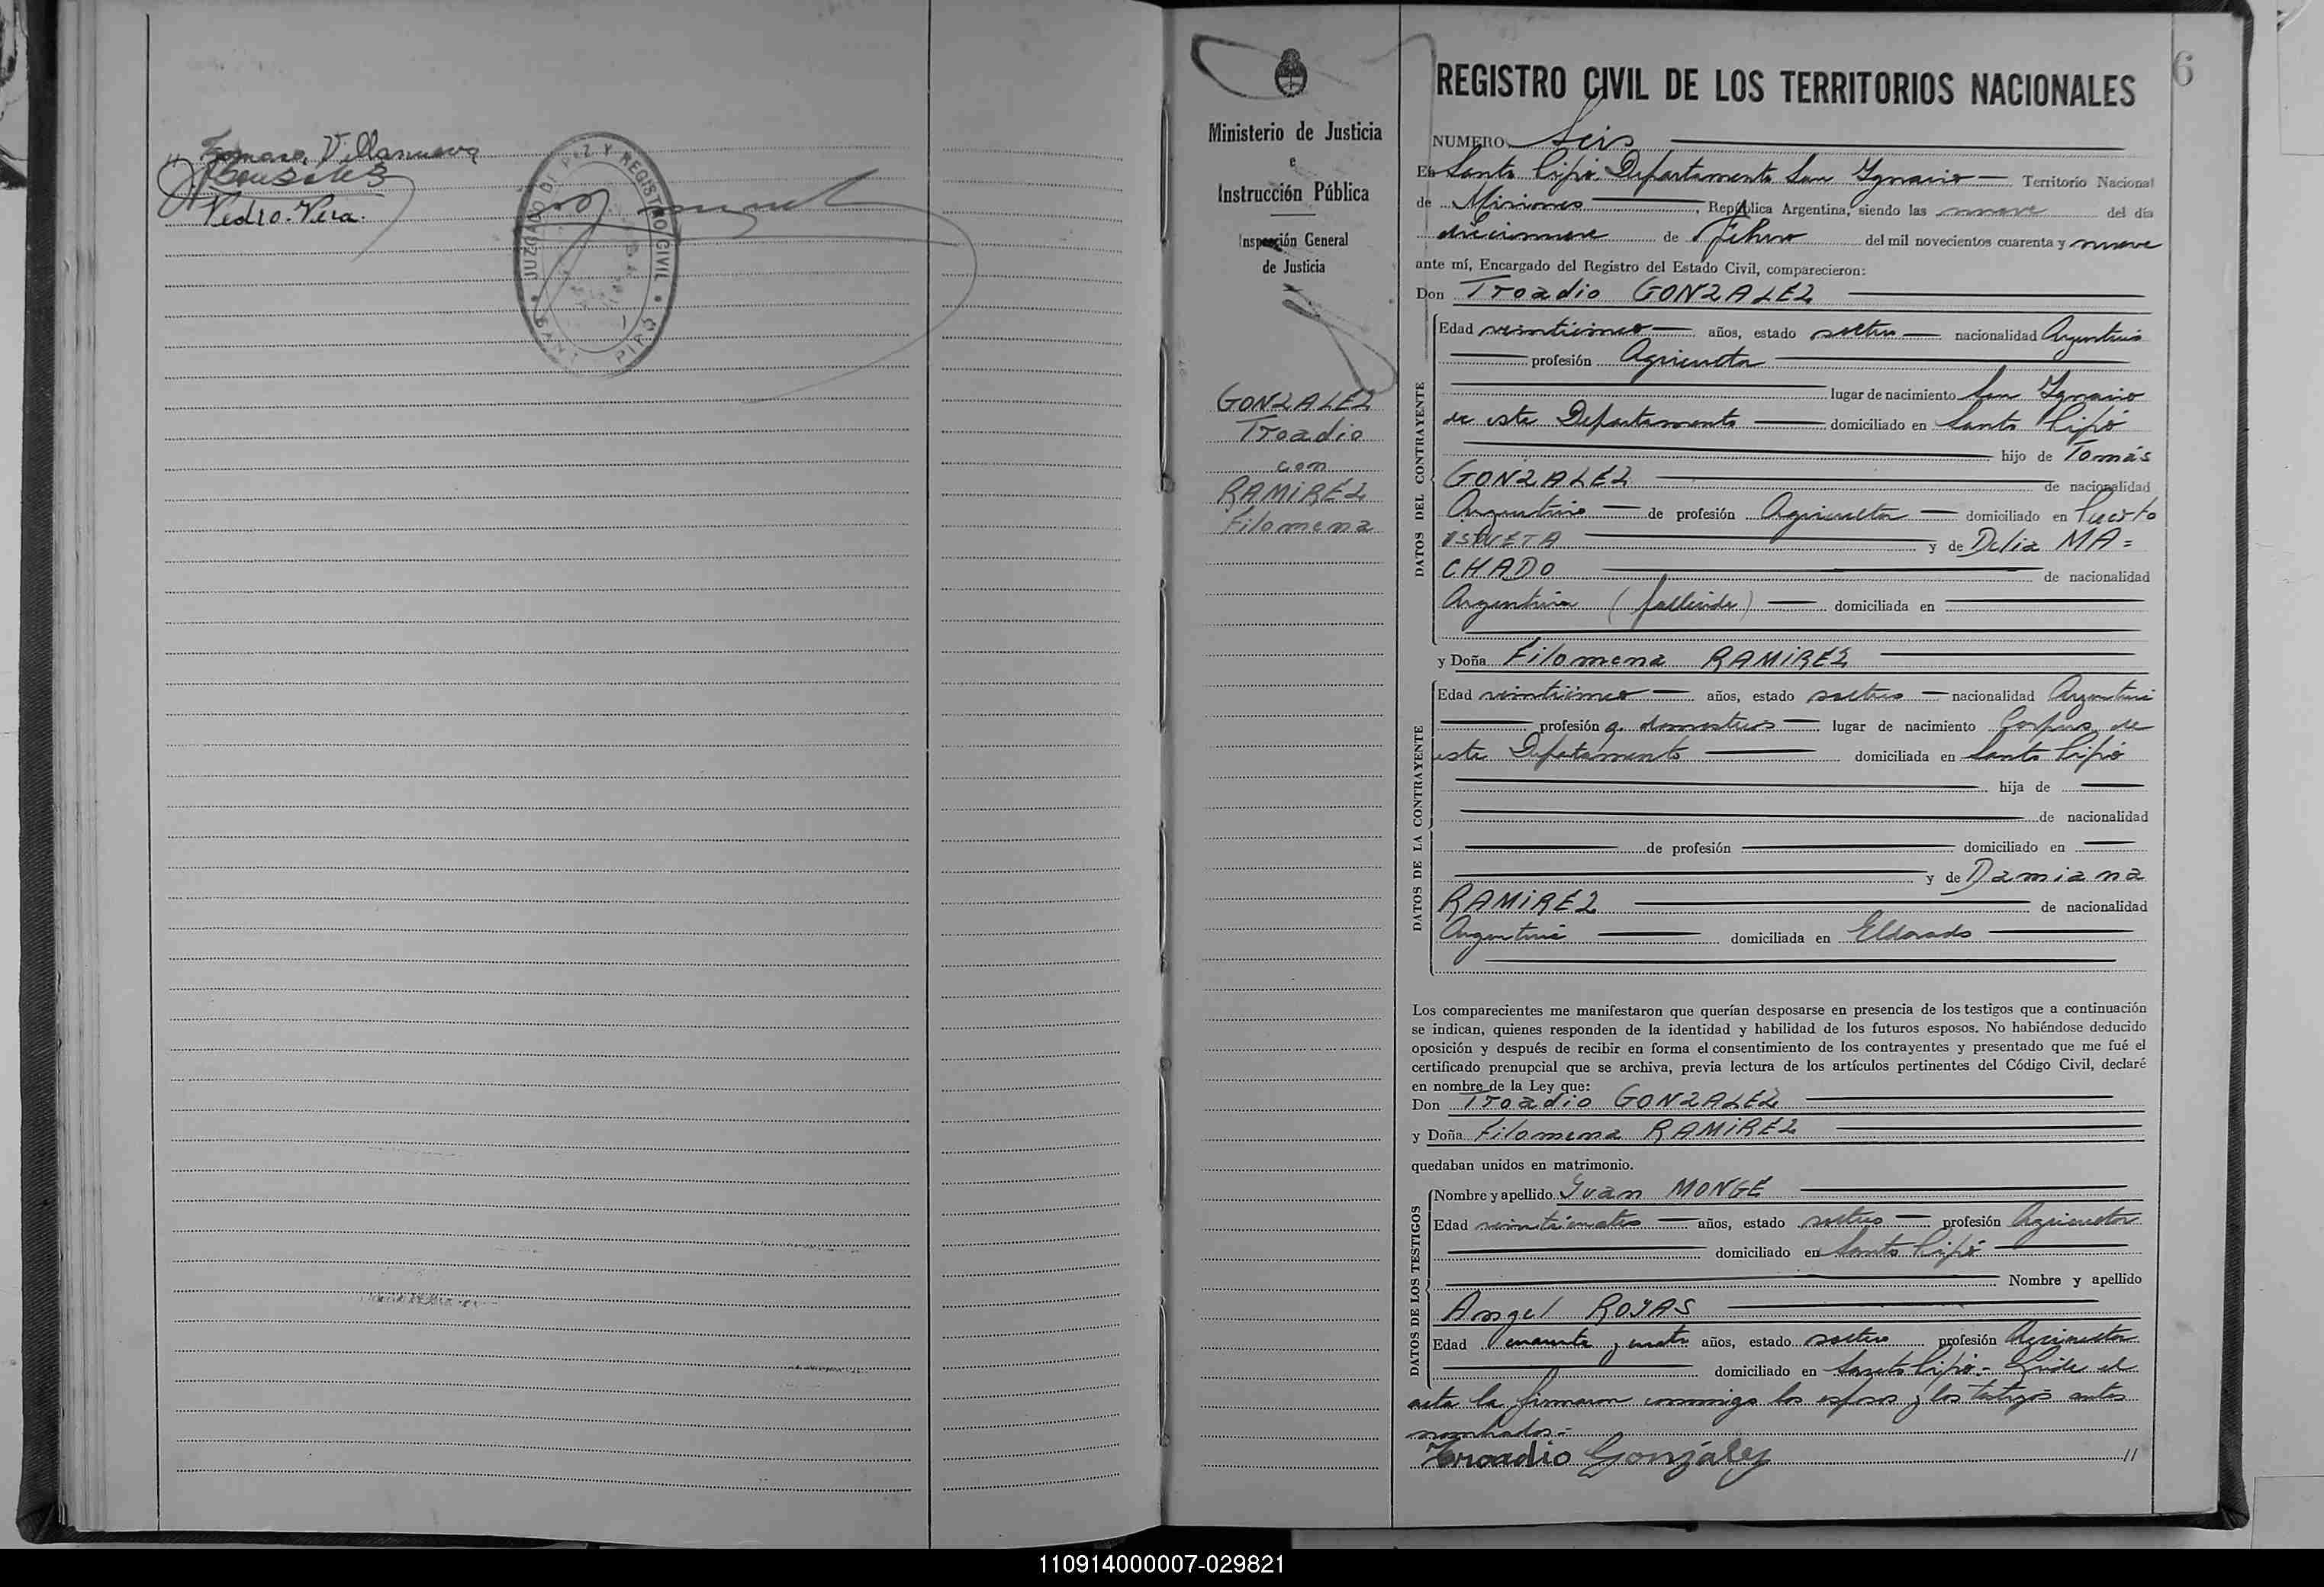 " Tomasa Villanueva
Gonzalez
Pedro Vera
JUZGADO DE PAZ Y REGISTRO CIVIL
SANTO PIPO
6
Ministerio de Justicia
e
Instrucción Pública
Inspección General
de Justicia
GONZALEZ
Troadio
con
RAMIREZ
Filomena
REGISTRO CIVIL DE LOS TERRITORIOS NACIONALES
NUMERO Seis
En Santo Pipó Departamento San Ignacio Territorio Nacional
de Misiones, República Argentina, siendo las nueve del día
diecinueve de Febrero del mil novecientos cuarenta y nueve
ante mí, Encargado del Registro del Estado Civil, comparecieron:
Don Troadio GONZALEZ
DATOS DEL CONTRAYENTE
Edad veinticinco años, estado soltero nacionalidad Argentina
profesión Agricultor
lugar de nacimiento San Ignacio
de este Departamento domiciliado en Santo Pipó
hijo de Tomás
GONZALEZ de nacionalidad
Argentino de profesión Agricultor domiciliado en Puerto
y de Delia MA=
CHADO de nacionalidad
Argentina (fallecida) domiciliada en
y Doña Filomena RAMIREZ
DATOS DE LA CONTRAYENTE
Edad veinticinco años, estado soltera nacionalidad Argentina
profesión q. domesticos lugar de nacimiento Corpus de
este Departamento domiciliada en Santo Pipó
hija de
de nacionalidad
de profesión domiciliado en
y de Damiana
RAMIREZ de nacionalidad
Argentina domiciliada en Eldorado
Los comparecientes me manifestaron que querían desposarse en presencia de los testigos que a continuación
se indican, quienes responden de la identidad y habilidad de los futuros esposos. No habiéndose deducido
oposición y después de recibir en forma el consentimiento de los contrayentes y presentado que me fué el
certificado prenupcial que se archiva, previa lectura de los artículos pertinentes del Código Civil, declaré
en nombre de la Ley que:
Don Troadio GONZALEZ
y Doña Filomena RAMIREZ
quedaban unidos en matrimonio.
DATOS DE LOS TESTIGOS
Nombre y apellido Juan MONGE
Edad veinticuatro años, estado soltero profesión Agricultor
domiciliado en Santo Pipó
Nombre y apellido
Angel ROJAS
Edad cuarenta y cuatro años, estado soltero profesión Agricultor
domiciliado en Santo Pipó.- Leída el
acta la firmaron conmigo los esposos y los testigos antes
nombrados.-
Troadio González "
110914000007-029821